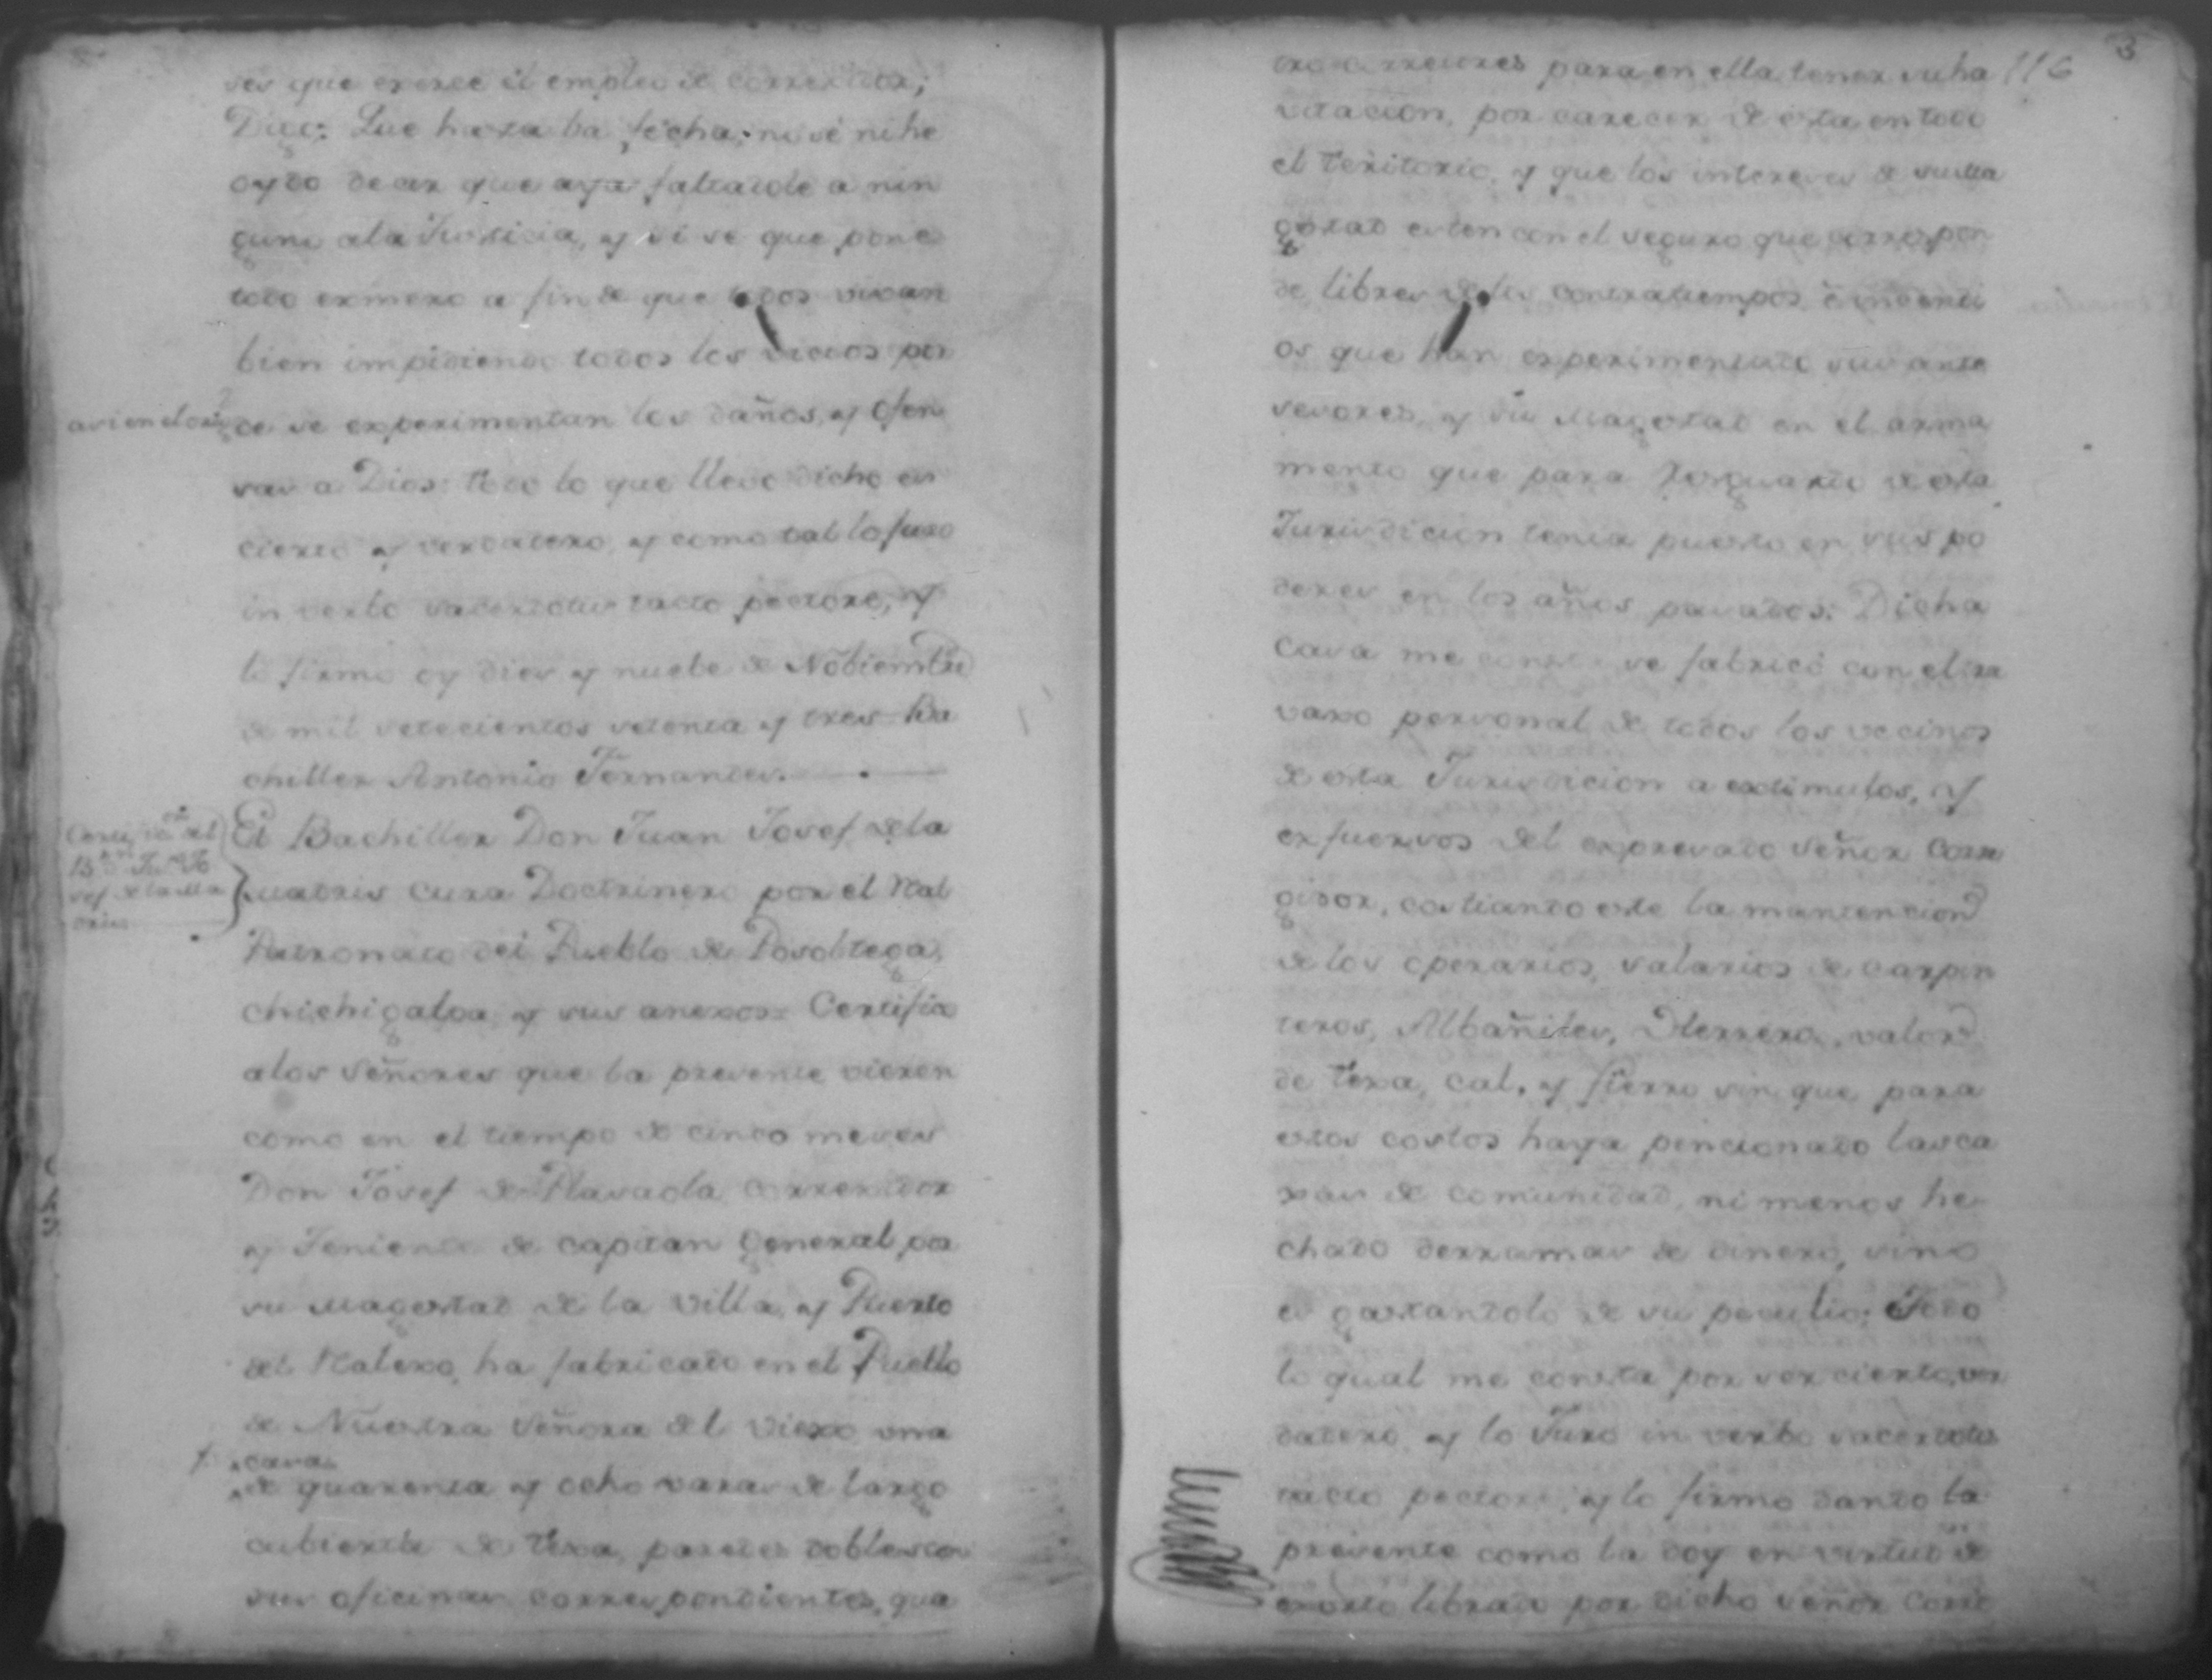 ses que exerce el empleo de correxidor;
Digo: Que hasta la fecha, ni sé ni he
oydo decir que aya faltadole a nin
guno a la Justicia, y si se que pone
todo exmero a fin de que todos vivan
bien impidiendo todos los vicios por
donde se experimentan los daños, y ofen
sas a Dios: todo lo que llevo dicho es
cierto y verdadero, y como tal lo juro
in verbo sacerdotis tacto pectore, y
lo firmo oy dies y nuebe de Nobiembre
de mil setecientos setenta y tres Ba
chiller Antonio Fernandes.
Certificaon del
Br Dn Jun Jo
sef de la Ma
dris
El Bachiller Don Juan Josef de la
Quadris Cura Doctrinero por el Real
Patronato del Pueblo de Posoltega,
chichigalpa, y sus anexos: Certifico
a los Señores que la presente vieren
como en el tiempo de cinco meses
Don Josef de Plasaola correxidor
y Teniente de capitan General por
su Magestad de la Villa, y Puerto
del Realexo, ha fabricado en el Pueblo
de Nuestra Señora del Viexo una
casa
de quarenta y ocho varas de largo
cubierta de texa, paredes dobles con
sus oficinas correspondientes, qua
116
3
tro corredores para en ella tener su ha
vitacion, por carecer de esta en todo
el Territorio, y que los intereses de su Ma
gestad esten con el seguro que correspon
de, libres de los contratiempos é insendi
os que han experimentado sus ante
sesores, y su Magestad en el arma
mento que para Resguardo de esta
Jurisdicion tenia puesto en sus po
deres en los años pasados: Dicha
Casa me consta se fabricó con el tra
vaxo personal de todos los vecinos
de esta Jurisdicion a extimulos, y
exfuersos del expresado Señor Corre
gidor, costiando este la mantencion
de los operarios, salarios de carpin
teros, Albañiles, Herrero, valor
de texa, cal, y fierro sin que para
estos costos haya pencionado las ca
xas de comunidad, ni menos he
chado derramas de dinero, sino
es gastandolo de su peculio: Todo
lo qual me consta por ser cierto, ver
dadero, y lo Juro in verbo sacerdotis
tacto pectore, y lo firmo dando la
presente como la doy en virtud de
exorto librado por dicho señor Corre